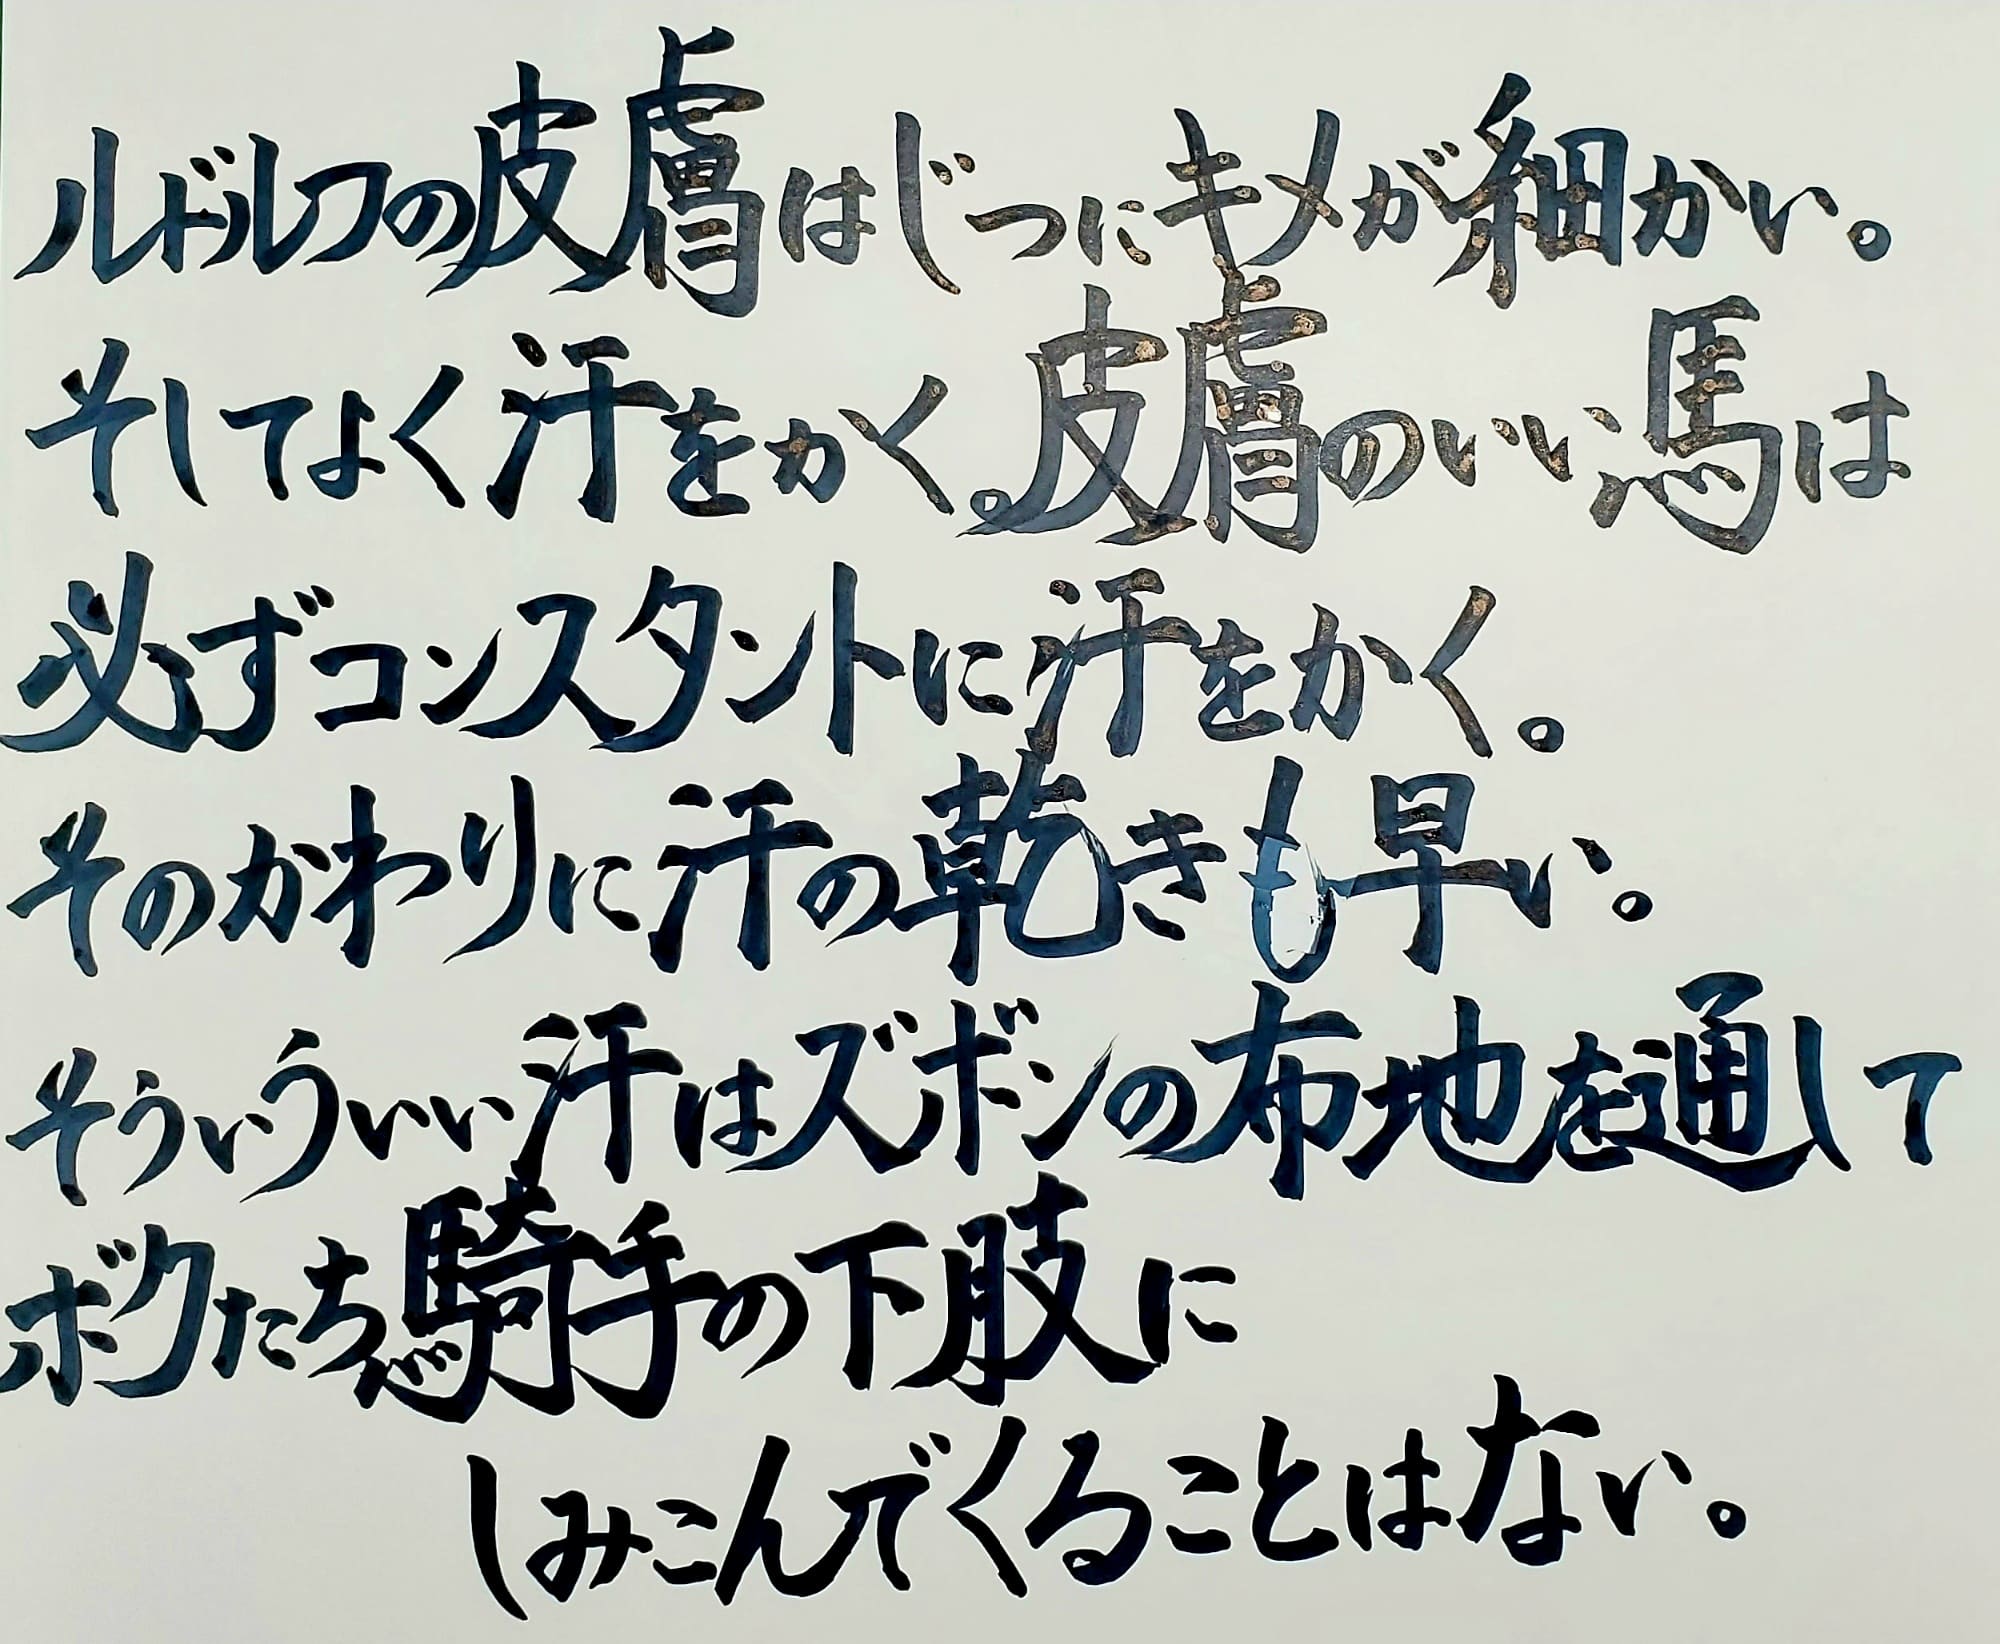 ルドルフの皮膚はじつにキメが細かい。
そしてよく汗をかく。皮膚のいい馬は
必ずコンスタントに汗をかく。
そのかわりに汗の乾きも早い。
そういういい汗はズボンの布地を通して
ボクたち騎手の下肢に
しみこんでくることはない。